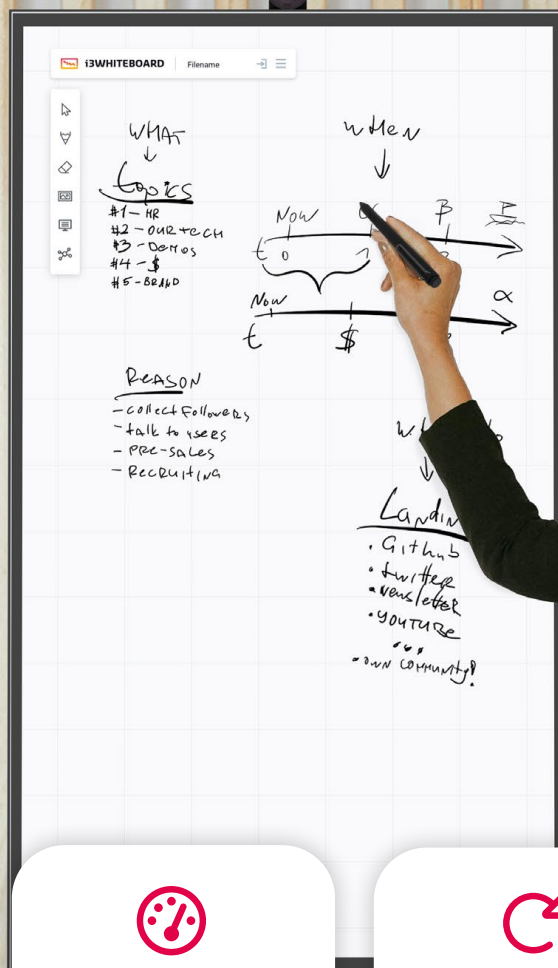 i3WHITEBOARD
Filename
WHAT
topics
#1 - HR
#2 - OUR TECH
#3 - DEMOS
#4 - $
#5 - BRAND
WHEN
NOW α β
t 0 1
NOW α
t $
REASON
- collect Followers
- talk to users
- PRE-SALES
- RECRUITING
Landin
• Github
• twitter
• Newsletter
• YOUTUBE
...
• OWN COMMUNITY!